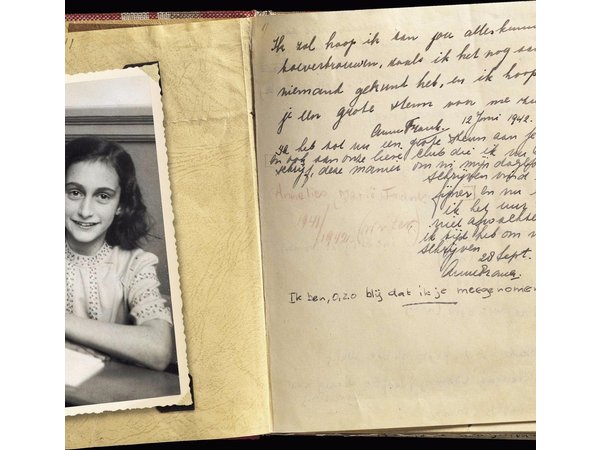 Ik zal hoop ik aan jou alles kunnen
toevertrouwen, zoals ik het nog aan
niemand gekund heb, en ik hoop
je een grote steun van me
Anne Frank. 12 Juni 1942.
Ik heb tot nu een grote steun aan je
en ook aan onze lieve club die ik nu
schrijf, deze manier om in mijn dagboek
schrijven vind
fijner en nu
ik het uur
tijd heb om
schrijven
28 Sept.
Anne Frank.
Annelies Marie Frank
1941/
1942
Ik ben, o, zo blij dat ik je meegenomen